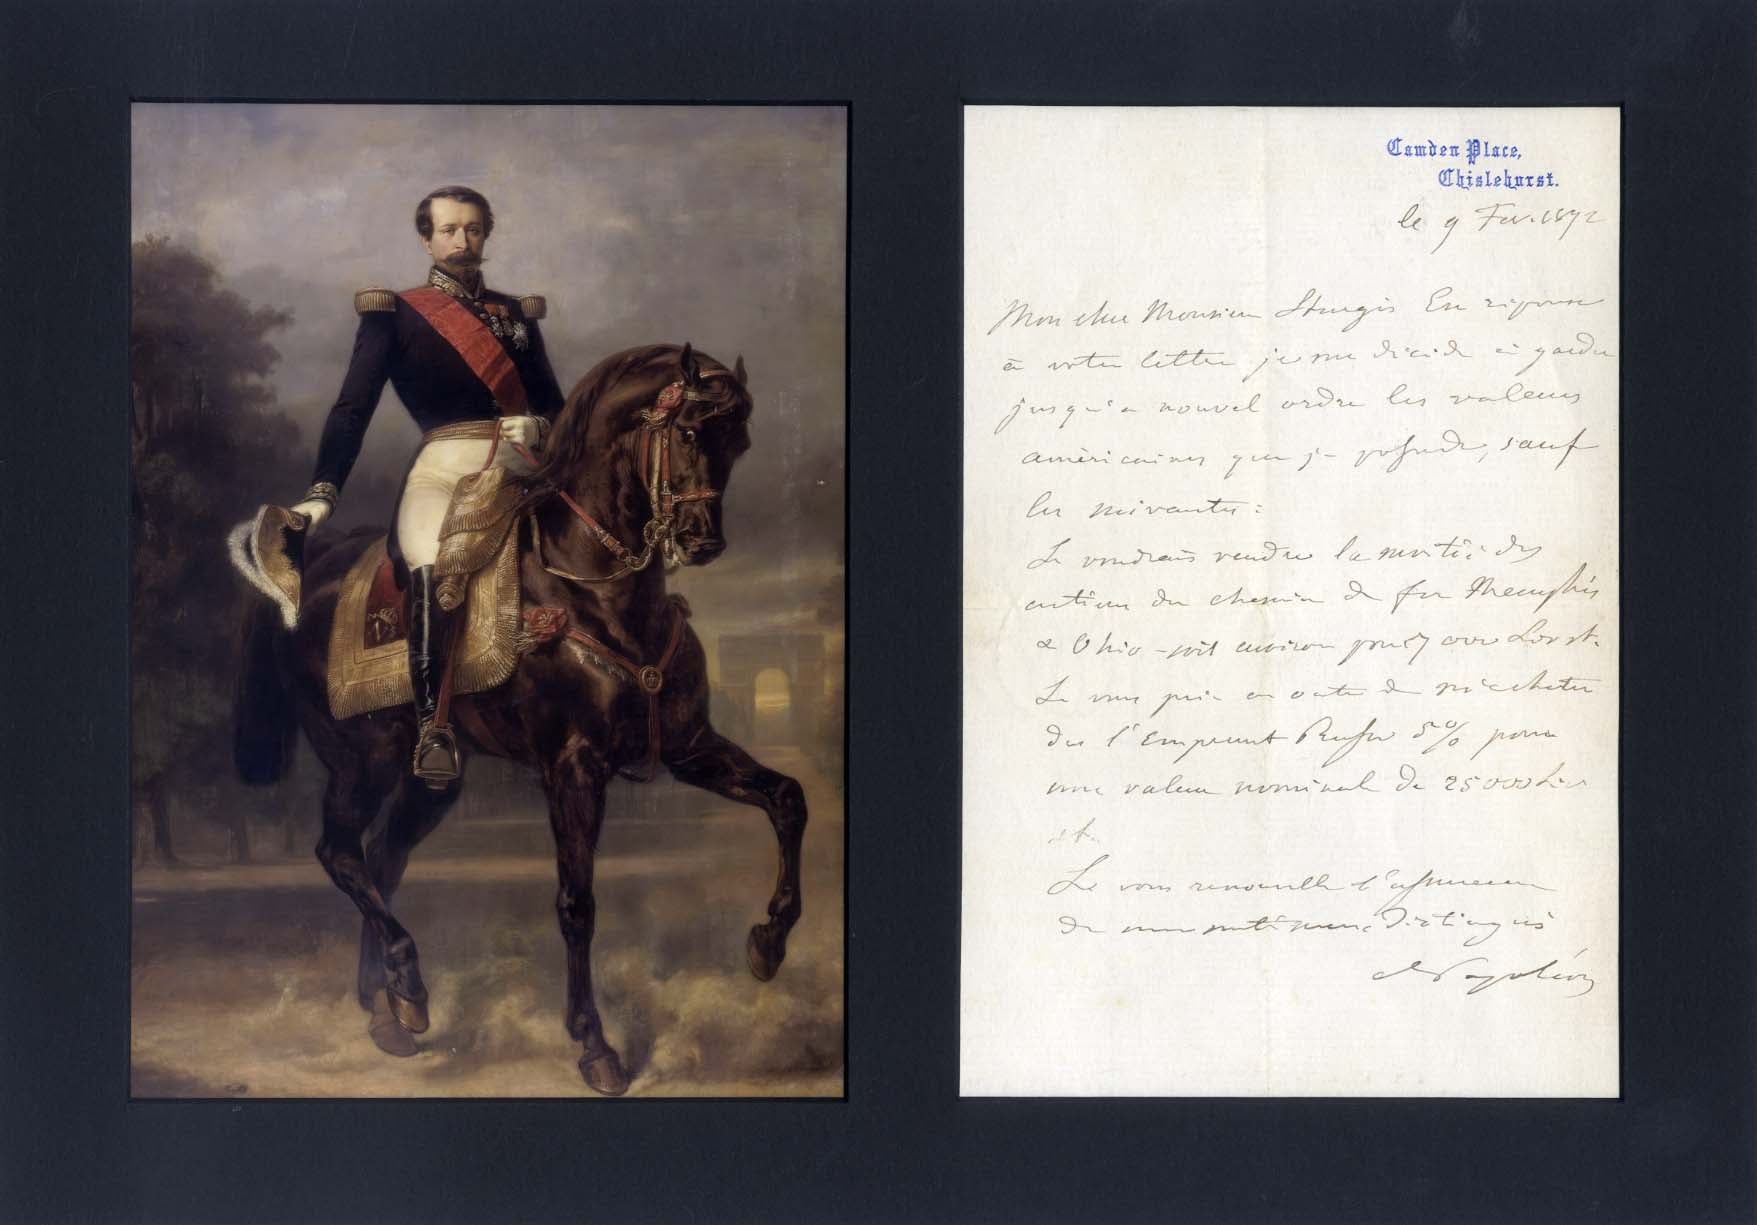 Camden Place,
Chislehurst.
le 9 Fev. 1872
Mon cher Monsieur Sturgis En réponse
à votre lettre je me décide à garder
jusqu'a nouvel ordre les valeurs
américaines que je possède, sauf
les suivantes:
Je voudrais vendre la moitié des
actions du chemin de fer Memphis
& Ohio - soit environ pour 7 000 Lv st.
Je vous prie en outre de m'acheter
de l'Emprunt Russe 5% pour
une valeur nominal de 25 000 Liv
st.
Je vous renouvelle l'assurance
de mes sentimens distingués
Napoléon